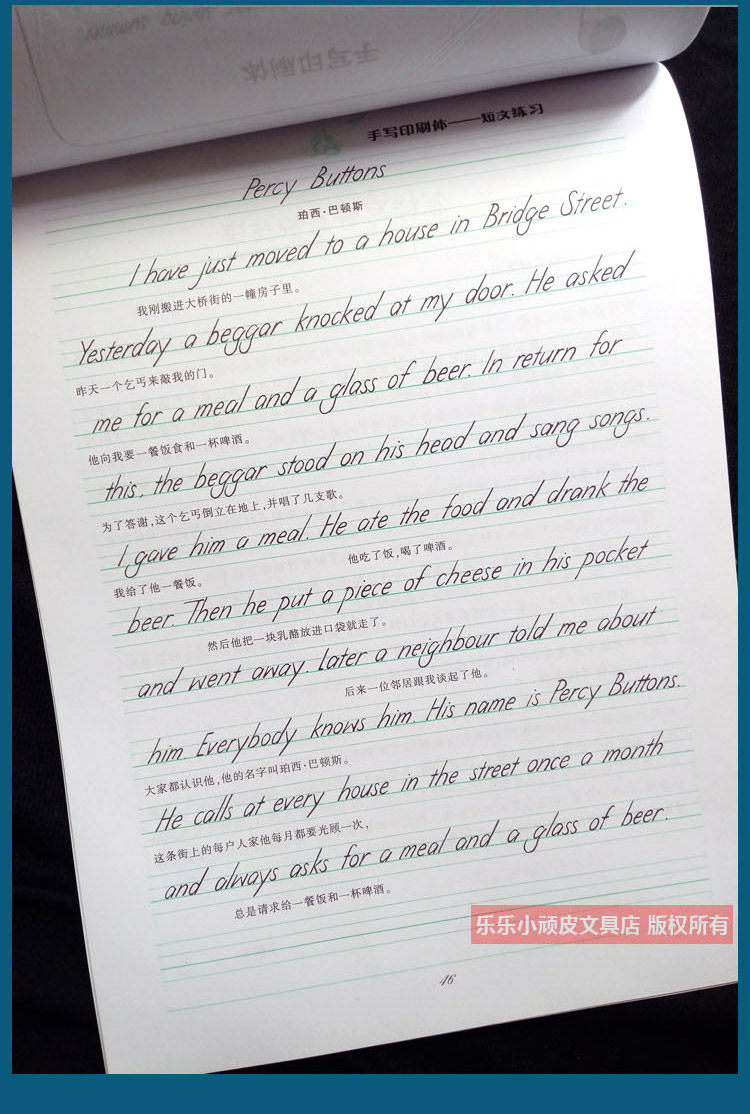 手写印刷体
手写印刷体——短文练习
Percy Buttons
珀西·巴顿斯
I have just moved to a house in Bridge Street.
我刚搬进大桥街的一幢房子里。
Yesterday a beggar knocked at my door. He asked
昨天一个乞丐来敲我的门。
me for a meal and a glass of beer. In return for
他向我要一餐饭食和一杯啤酒。
this, the beggar stood on his head and sang songs.
为了答谢,这个乞丐倒立在地上,并唱了几支歌。
I gave him a meal. He ate the food and drank the
我给了他一餐饭。 他吃了饭,喝了啤酒。
beer. Then he put a piece of cheese in his pocket
然后他把一块乳酪放进口袋就走了。
and went away. Later a neighbour told me about
后来一位邻居跟我谈起了他。
him. Everybody knows him. His name is Percy Buttons.
大家都认识他,他的名字叫珀西·巴顿斯。
He calls at every house in the street once a month
这条街上的每户人家他每月都要光顾一次,
and always asks for a meal and a glass of beer.
总是请求给一餐饭和一杯啤酒。
乐乐小顽皮文具店 版权所有
46